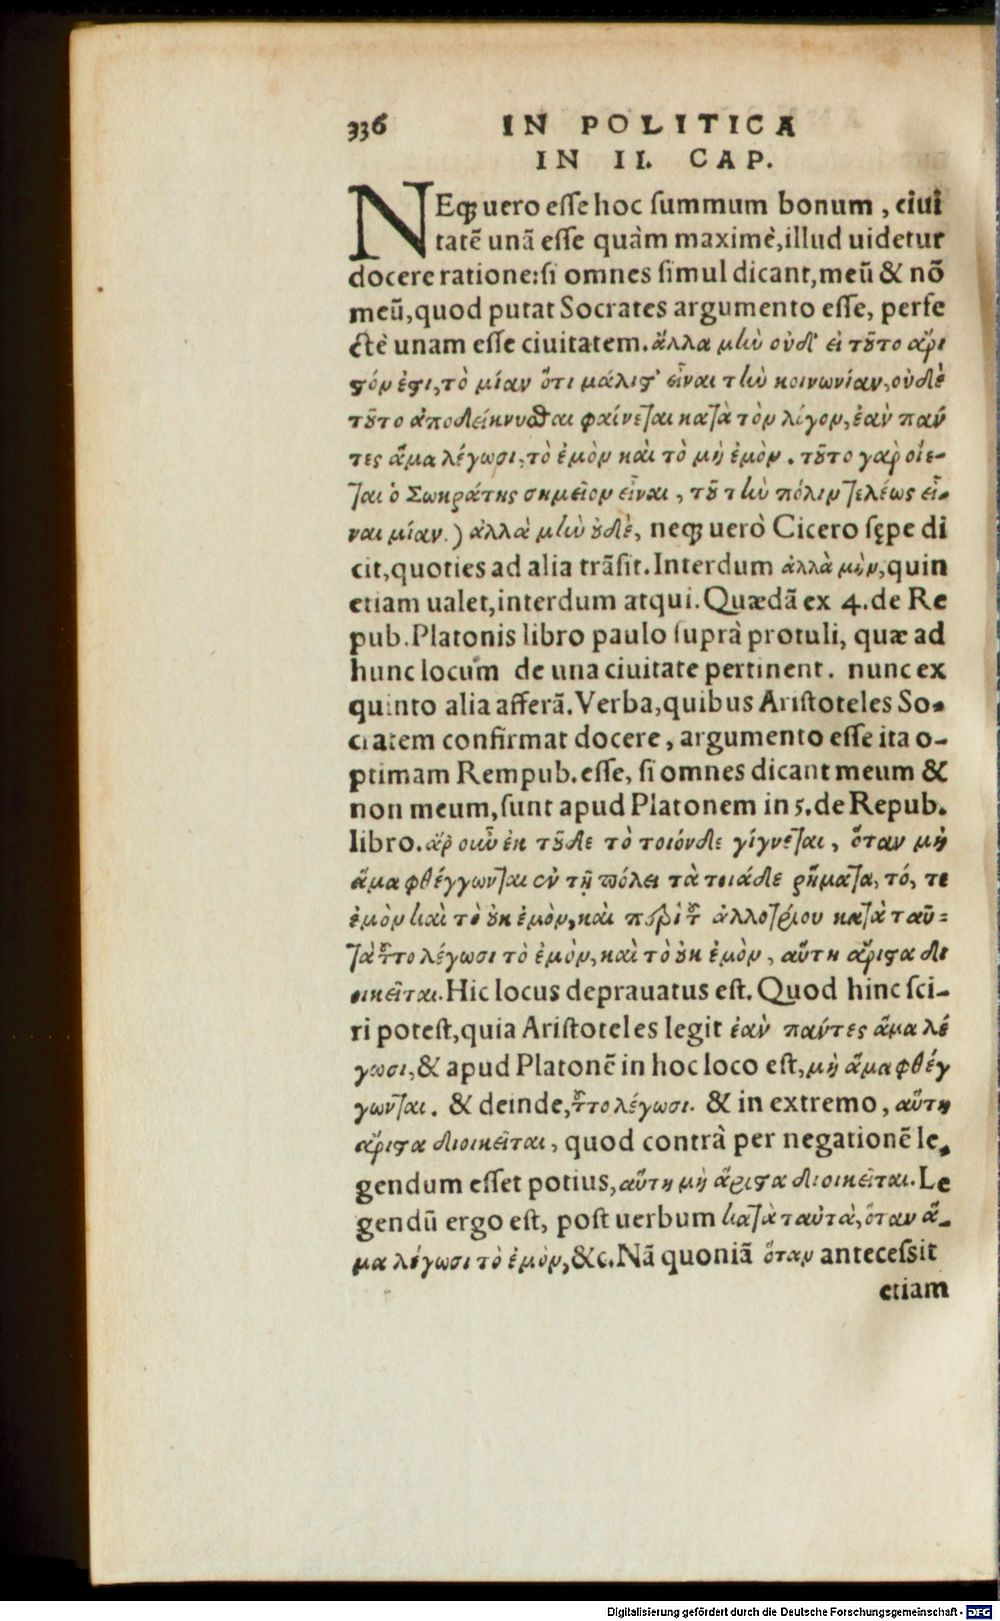 336 IN POLITICA
IN II. CAP.
NEq; uero esse hoc summum bonum, ciui
tatē unā esse quàm maximè, illud uidetur
docere ratione: si omnes simul dicant, meū & nō
meū, quod putat Socrates argumento esse, perfe
ctè unam esse ciuitatem. ἄλλα μlὼ οὐδ' εἰ τȣ̃το ἄρι
ϛόν ἐϛι, τὸ μίαν ὅτι μάλιϛ' εἶναι τlὼ κοινωνίαν, οὐδὲ
τȣ̃το ἀποδείκνυσθαι φαίνεται κατὰ τὸν λόγον, ἐὰν πάν
τες ἅμα λέγωσι, τὸ ἐμὸν καὶ τὸ μὴ ἐμόν. τȣ̃το γὰρ οἴε-
ται ὁ Σωκράτης σημεῖον εἶναι, τȣ̃ τlὼ πόλιν τελέως εἶ-
ναι μίαν.) ἀλλὰ μlὼ ȣ̓δὲ, neq; uerò Cicero sępe di
cit, quoties ad alia trāsit. Interdum ἀλλὰ μὴν, quin
etiam ualet, interdum atqui. Quædā ex 4. de Re
pub. Platonis libro paulo suprà protuli, quæ ad
hunc locum de una ciuitate pertinent. nunc ex
quinto alia afferā. Verba, quibus Aristoteles So-
cratem confirmat docere, argumento esse ita o-
ptimam Rempub. esse, si omnes dicant meum &
non meum, sunt apud Platonem in 5. de Repub.
libro. ἆρ' οὖν ἐκ τȣ̃δε τὸ τοιόνδε γίγνεται, ὅταν μὴ
ἅμα φθέγγωνται ἐν τῇ πόλει τὰ τοιάδε ῥήματα, τό, τε
ἐμὸν καὶ τὸ ȣ̓κ ἐμὸν, καὶ περὶ τȣ̃ ἀλλοτρίου κατὰ ταὐ=
τὰ τȣ̃το λέγωσι τὸ ἐμὸν, καὶ τὸ ȣ̓κ ἐμὸν, αὕτη ἄριϛα δι
οικεῖται. Hic locus deprauatus est. Quod hinc sci-
ri potest, quia Aristoteles legit ἐὰν πάντες ἅμα λέ
γωσι, & apud Platonē in hoc loco est, μὴ ἅμα φθέγ
γωνται. & deinde, τȣ̃το λέγωσι. & in extremo, αὕτη
ἄριϛα διοικεῖται, quod contrà per negationē le-
gendum esset potius, αὕτη μὴ ἄριϛα διοικεῖται. Le
gendū ergo est, post uerbum κατὰ ταὐτὰ, ὅταν ἅ-
μα λέγωσι τὸ ἐμὸν, &c. Nā quoniā ὅταν antecessit
etiam
Digitalisierung gefördert durch die Deutsche Forschungsgemeinschaft - DFG